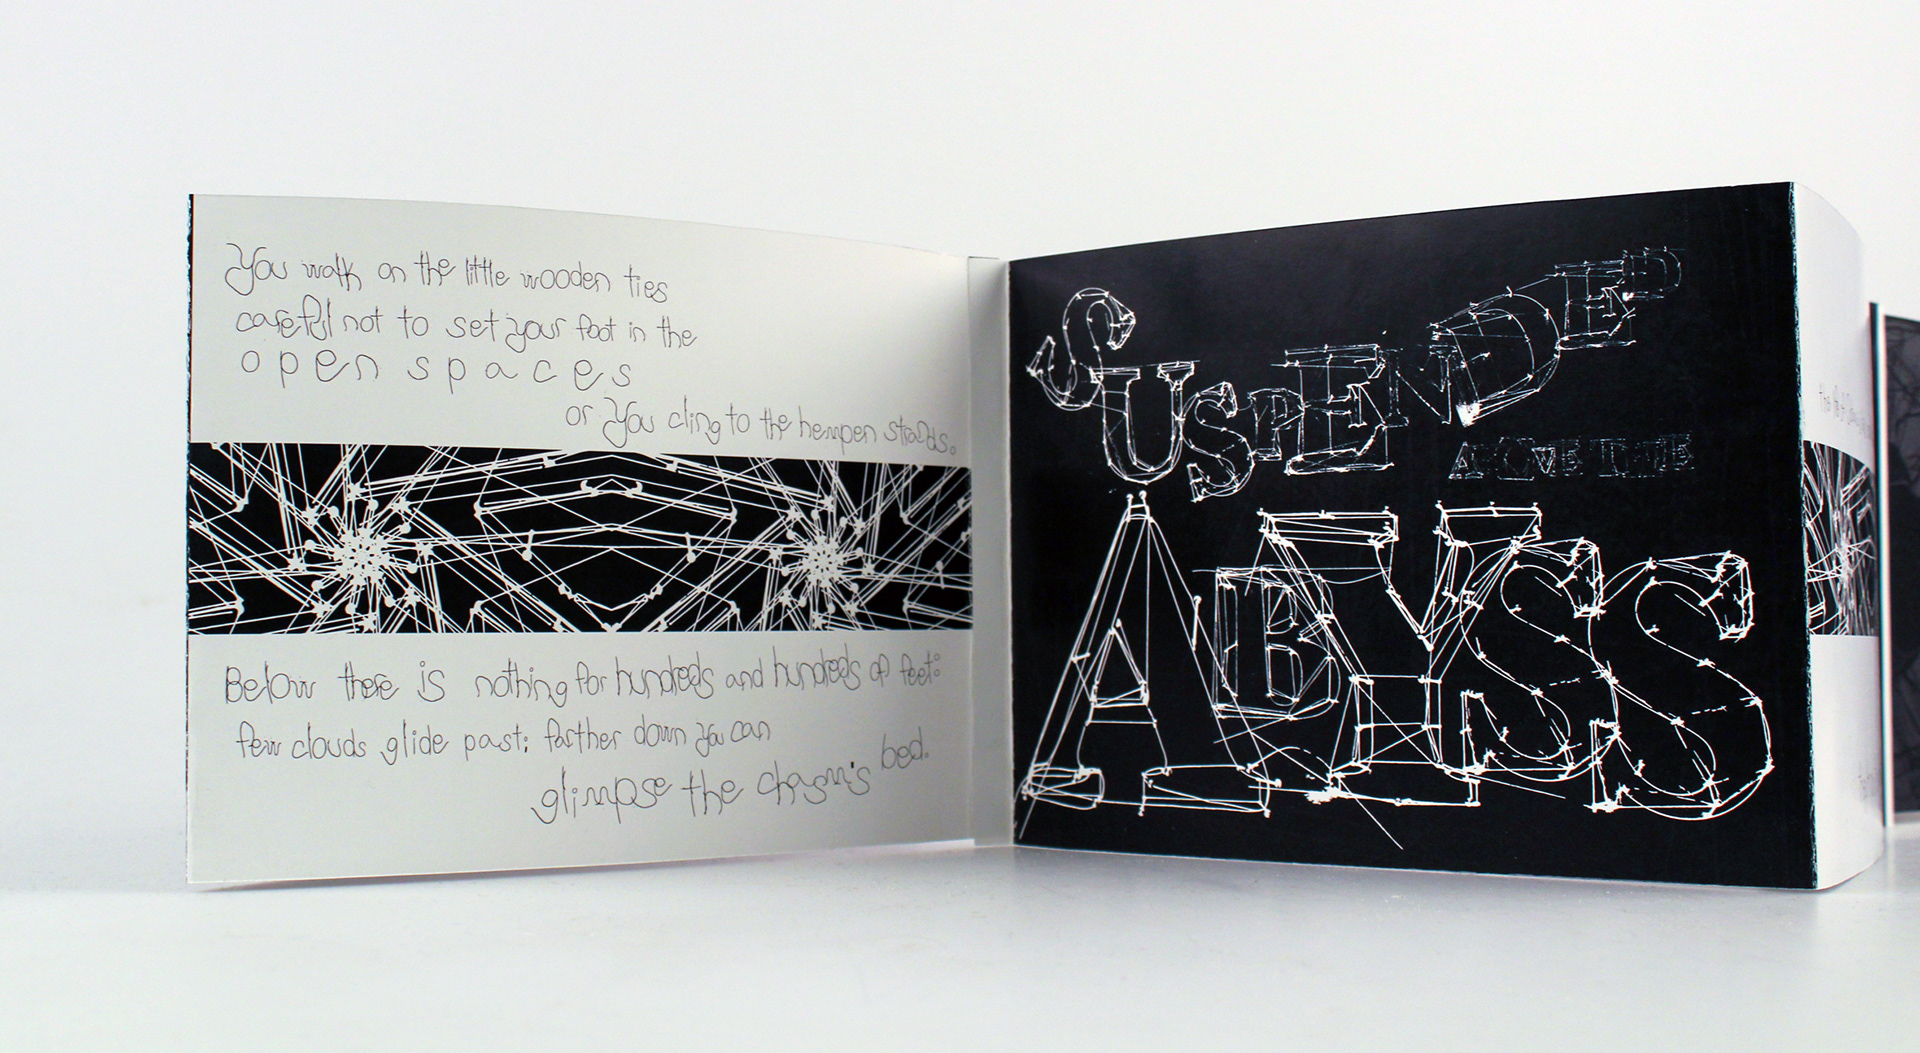 You walk on the little wooden ties
careful not to set your foot in the
open spaces
or you cling to the hempen strands.
Below there is nothing for hundreds and hundreds of feet:
few clouds glide past; farther down you can
glimpse the chasm's bed.
SUSPENDED
ABOVE THE
ABYSS